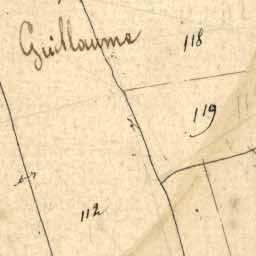 Guillaume
118
119
112